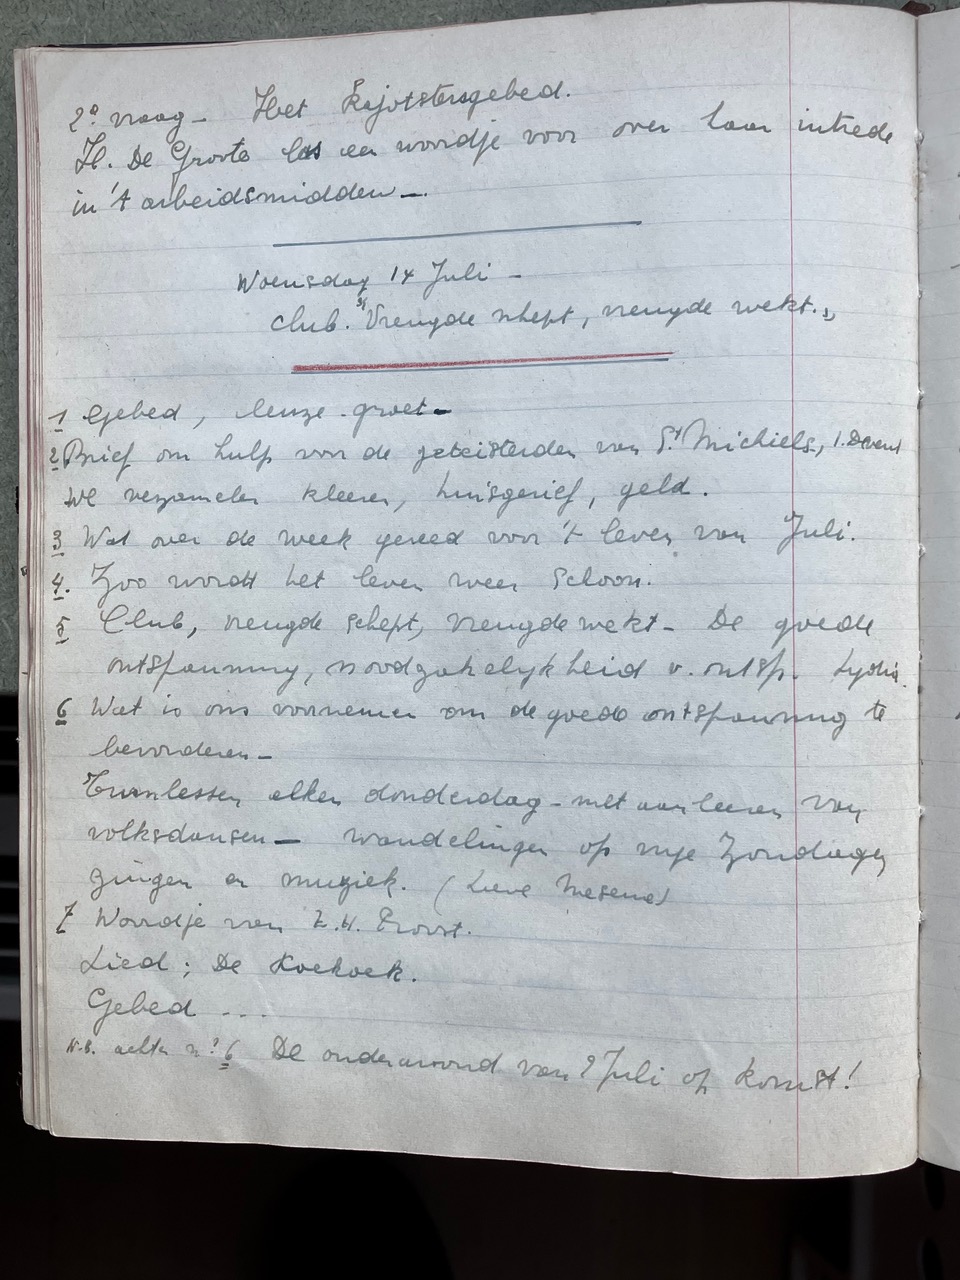 2º vraag - Het Kajotstersgebed.
H. De Groote las een woordje voor over haar intrede
in 't arbeidsmidden -.
Woensdag 14 Juli -
Club. "Vreugde schept, vreugde wekt."
1 Gebed, leuze-groet -
2 Brief om hulp voor de geteisterden van St Michiels,
We verzamelen kleeren, huisgerief, geld.
3 Wat over de week gereed voor 't leven van Juli.
4. Zoo wordt het leven weer schoon.
5 Club, vreugde schept, vreugde wekt - De goede
ontspanning, noodzakelijkheid v. ontsp. Lydia.
6 Wat is ons voornemen om de goede ontspanning te
bevorderen -
Turnlessen elken donderdag - met aanleeren van
volksdansen - wandelingen op vrije Zondagen
zingen en muziek. (Lieve
7 Woordje van Z.H. Proost.
Lied: De Koekoek.
Gebed ...
N.B. achter nº 6 De ouderavond van 9 Juli op komst!